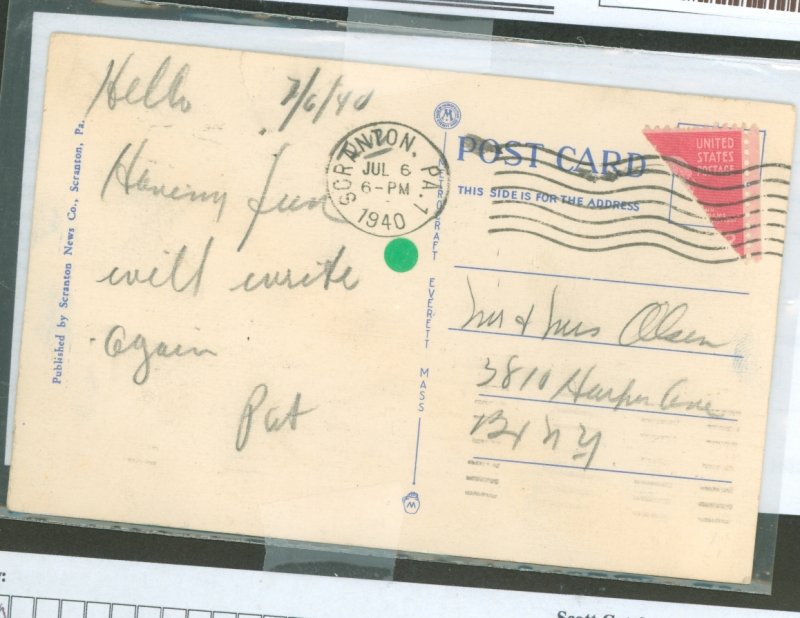 Hello 7/6/40
Having fun
will write
again
Pat
Published by Scranton News Co., Scranton, Pa.
SCRANTON, PA. 1
JUL 6
6-PM
1940
EVERETT MASS
POST CARD
THIS SIDE IS FOR THE ADDRESS
UNITED
STATES
POSTAGE
Mr & Mrs Olsen
3810 Harper Ave
Bx N Y.